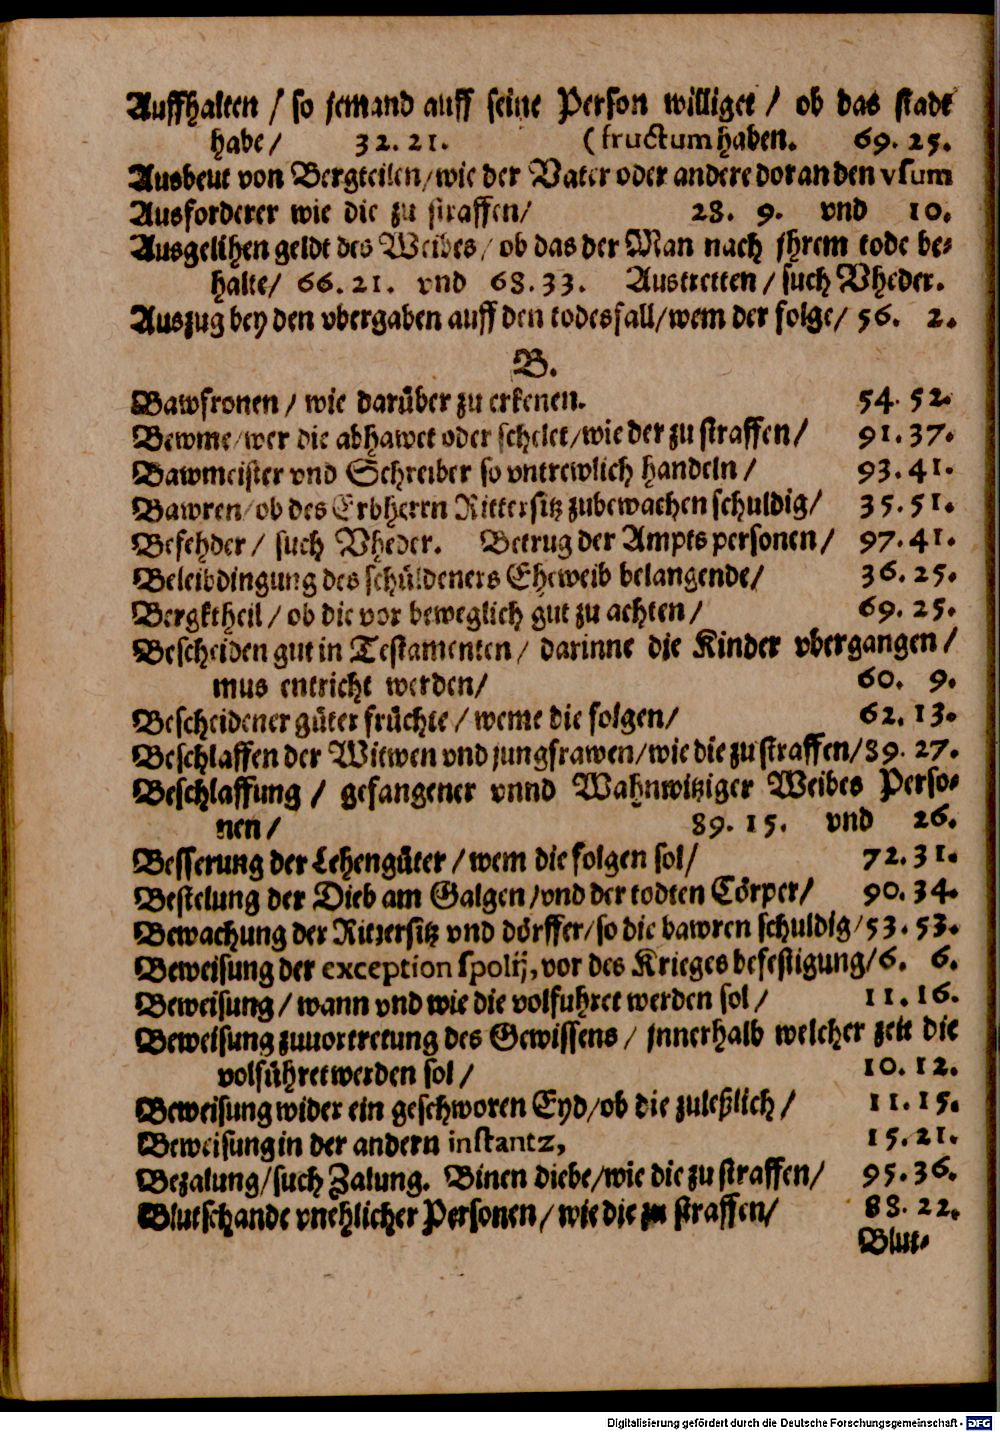 Auffhalten / so jemand auff seine Person williget / ob das stadt
habe / 32. 21. (fructum haben. 69. 25.
Ausbeut von Bergteilen / wie der Vater oder andere doran den vsum
Ausforderer wie die zu straffen / 28. 9. vnd 10.
Ausgelihen geldt des Weibes / ob das der Man nach jhrem tode be-
halte / 66. 21. vnd 68. 33. Austretten / such Vheder.
Auszug bey den vbergaben auff den todesfall / wem der folge / 56. 2.
B.
Bawfronen / wie darüber zu erkenen. 54. 52.
Bewme / wer die abhawet oder schelet / wie der zu straffen / 91. 37.
Bawmeister vnd Schreiber so vntrewlich handeln / 93. 41.
Bawren / ob des Erbherrn Rittersitz zubewachen schuldig / 35. 51.
Befehder / such Vheder. Betrug der Ampts personen / 97. 41.
Beleibdingung des schüldeners Eheweib belangende / 36. 25.
Bergktheil / ob die vor beweglich gut zu achten / 69. 25.
Bescheiden gut in Testamenten / darinne die Kinder vbergangen /
mus entricht werden / 60. 9.
Bescheidener güter früchte / weme die folgen / 62. 13.
Beschlaffen der Witwen vnd jungfrawen / wie die zu straffen / 89. 27.
Beschlaffung / gefangener vnnd Wahnwitziger Weibes Perso-
nen / 89. 15. vnd 26.
Besserung der Lehengüter / wem die folgen sol / 72. 31.
Bestelung der Dieb am Galgen / vnd der todten Cörper / 90. 34.
Bewachung der Rittersitz vnd dörffer / so die bawren schuldig / 53. 53.
Beweisung der exception spolij, vor des Krieges befestigung / 6. 6.
Beweisung / wann vnd wie die volfuhret werden sol / 11. 16.
Beweisung zuuortretung des Gewissens / jnnerhalb welcher zeit die
volführet werden sol / 10. 12.
Beweisung wider ein geschworen Eyd / ob die zuleßlich / 11. 15.
Beweisung in der andern instantz, 15. 21.
Bezalung / such Zalung. Binen diebe / wie die zu straffen / 95. 36.
Blutschande vnehlicher Personen / wie die zu straffen / 88. 22.
Blut-
Digitalisierung gefördert durch die Deutsche Forschungsgemeinschaft - DFG